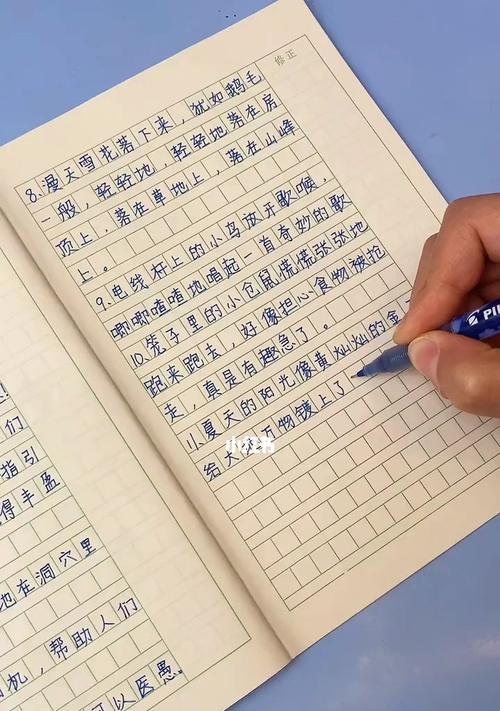 们
指引
得丰盈
地在洞穴里
机，帮助人们
可以医愚。
修正
8.漫天雪花落下来，犹如鹅毛
一般，轻轻地，轻轻地落在房
顶上，落在草地上，落在山峰
上。
9.电线杆上的小鸟放开歌喉，
唧唧喳喳地唱起一首奇妙的歌
10.笼子里的小仓鼠慌慌张张地
跑来跑去，好像担心食物被抢
走，真是有趣急了。
小夏天的阳光像黄灿灿的金
给大 万物镀上了
小红书
PIL